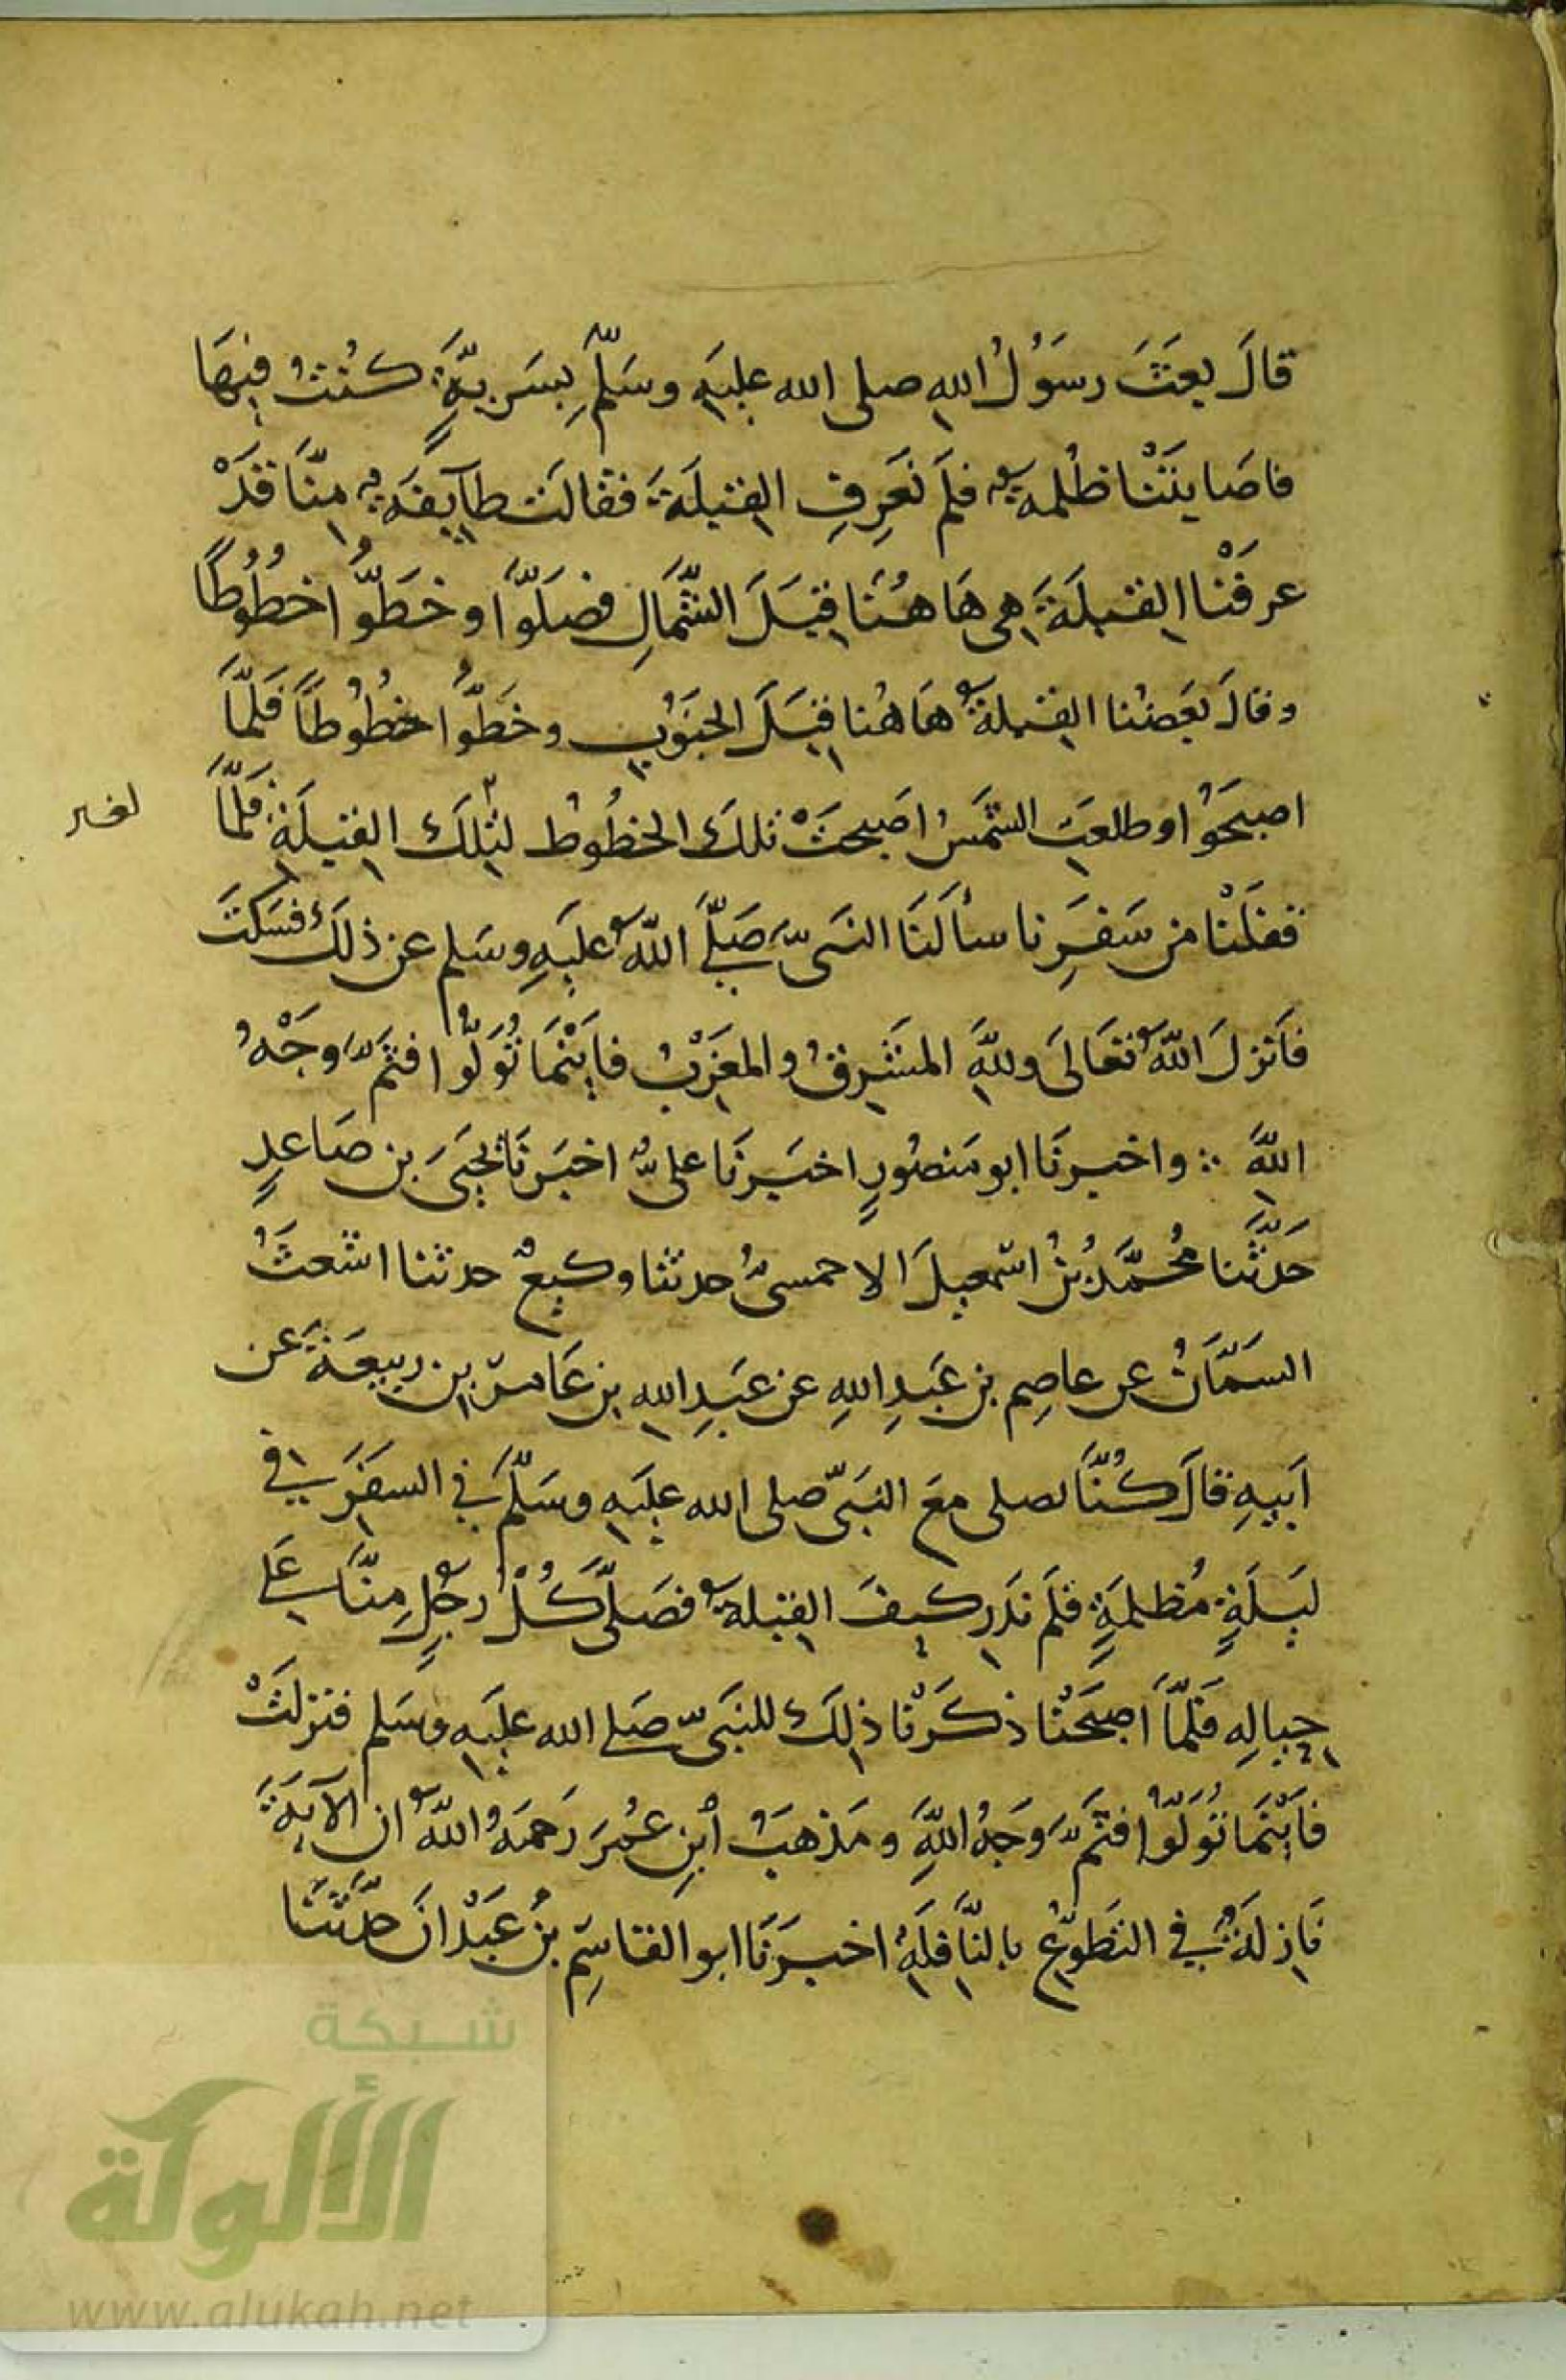 قالَ بعَثَ رسَوُلُ اللهِ صلى الله عليَهِ وسَلَّم بِسَريَّةٍ كنُتُ فيهَا
فاصَابتَنْا ظُلمهٌ فلَم نَعَرِفِ القبلَةَ فقالَت طآيفَهٌ مِنّاَ قَدْ
عرفَنْا القبلَةَ هي هَاهُنَا قِبَلَ الشَّمَالِ فصَلَّوا وخَطُّوا خطُوُطًا
وقالَ بعَضُنا القبلةُ هَاهُنا قِبَلَ الجنَوُبِ وخَطُّوا خطُوُطاً فَلَمّاَ
اصبَحَوُا وطلعتِ الشمَسُ اصَبحتَْ تلكَ الخطُوُطُ لغير
لتِلكَ القبلَةِ فَلمّاَ
قفلَنْا من سَفرَنِا سألَنَا النبَىَّ صَلَّى اللّهُ عليَهِ وسَلم عن ذلَكَ فسَكتَ
فاَنزلَ اللّهُ تعَالىَ وللّهِ المشَرِقُ والمغَرِبُ فايَنَْمَا تُوَلُّوا فثَمَّ وَجْهُ
اللّهِ ۞ واخبرنَا ابو مَنصُورٍ اخبَرنَا علىٌّ اخبَرنَا يحيَىَ بن صَاعدٍ
حَدَّثَنا مُحمَّدُ بنُ اسمعيلَ الاحمسىُّ حدثنا وكيعٌ حدثنا اشعثُ
السَمَّانُ عن عاصِم بن عَبَدِ اللهِ عن عبَدِ الله بن عَامر بن ربيعَةَ عن
اَبيهِ قالَ كُنَّا نصلى معَ النبَىّ صلى الله عليَهِ وسَلَّمَ في السفَرَ في
ليَلَةٍ مُظلمةٍ فلَم نَدَرِ كيفَ القبلةُ فصَلَّى كُلُّ رجُلٍ مِنّاَ علَى
حِيالِهِ فَلمّاَ اصبَحَنْا ذكَرَنْا ذلِكَ للنبَىّ صَلى الله عليَهِ وسَلم فنزلتَْ
فايَنَْمَا تُوَلُّوا فثَمَّ وَجهُ اللّهِ ومَذهبُ ابنِ عُمرَ رَحمَهُ اللّهُ ان الآيَةَ
نَازلَةٌ في التطَوّعُِ بالنَّافلَةِ اخبرَنَا ابو القاسِم بنُ عَبَدْانَ حدَّثَنَا
شبكة
الألوكة
www.alukah.net